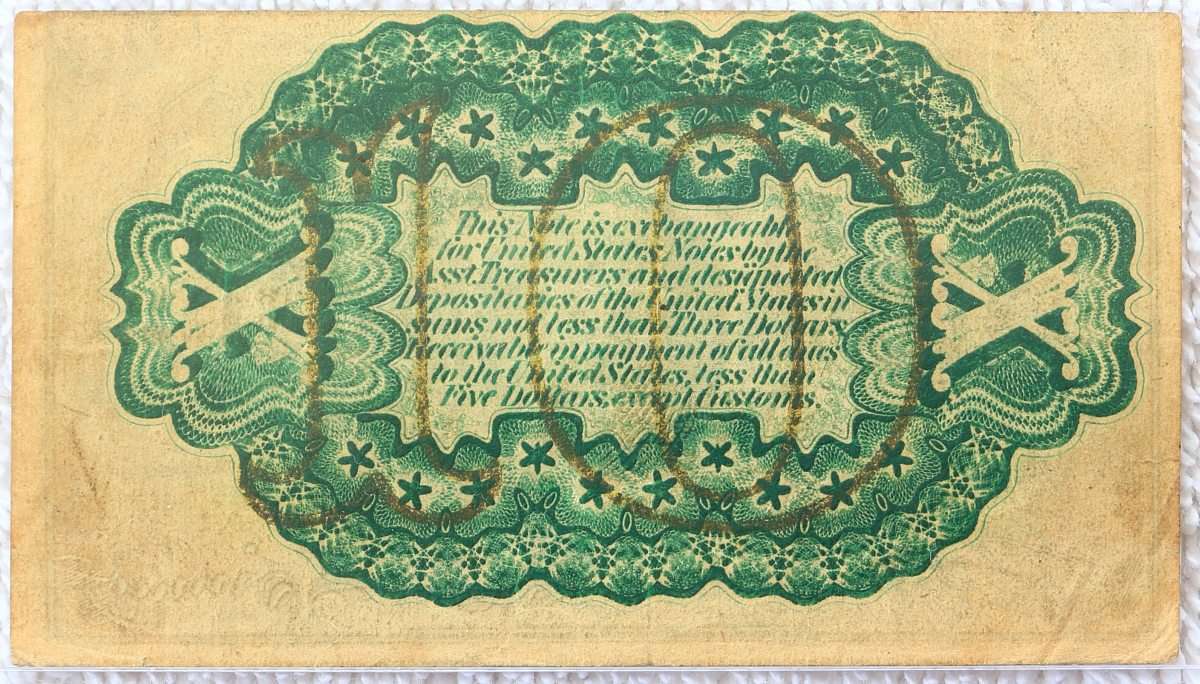 10
This Note is exchangeable
for United States Notes by the
Asst. Treasurers and designated
Depositaries of the United States in
sums, not less than Three Dollars.
Receivable in payment of all dues
to the United States, less than
Five Dollars, except Customs.
X
X